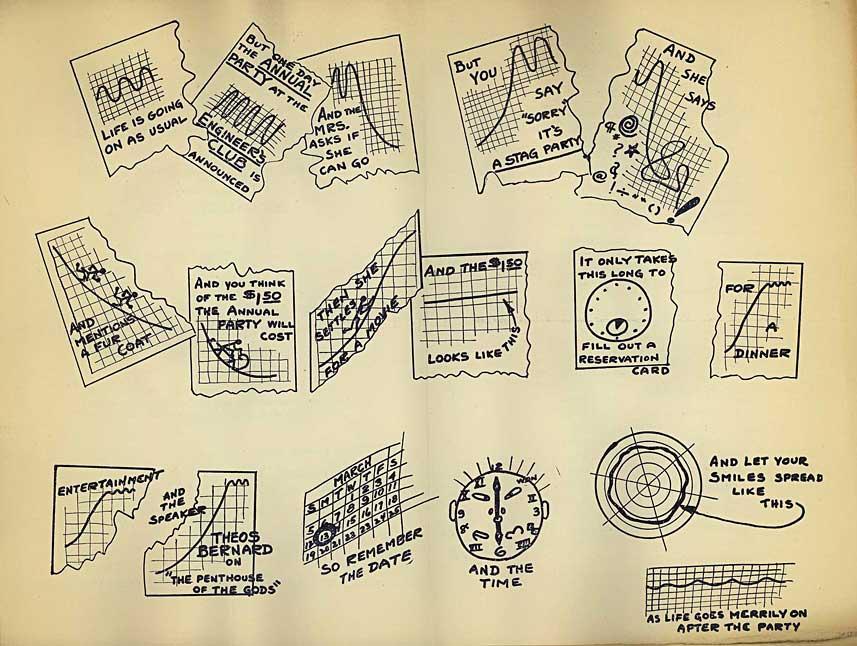 LIFE IS GOING
ON AS USUAL
BUT ONE DAY
THE ANNUAL
PARTY AT THE
ENGINEER'S
CLUB IS
ANNOUNCED
AND THE
MRS.
ASKS IF
SHE
CAN GO
BUT
YOU
SAY
"SORRY"
IT'S
A STAG PARTY
AND
SHE
SAYS
AND
MENTIONS
A FUR
COAT
AND YOU THINK
OF THE $1.50
THE ANNUAL
PARTY WILL
COST
THEN SHE
SETTLES
FOR A MOVIE
AND THE $1.50
LOOKS LIKE THIS
IT ONLY TAKES
THIS LONG TO
FILL OUT A
RESERVATION
CARD
FOR
A
DINNER
ENTERTAINMENT
AND
THE
SPEAKER
THEOS
BERNARD
ON
"THE PENTHOUSE
OF THE GODS"
MARCH
S M T W T F S
1 2 3 4
5 7 8 9 10 11
12 13 14 15 16 17 18
19 20 21 22 23 24 25
SO REMEMBER
THE DATE
AND THE
TIME
AND LET YOUR
SMILES SPREAD
LIKE
THIS
AS LIFE GOES MERRILY ON
AFTER THE PARTY